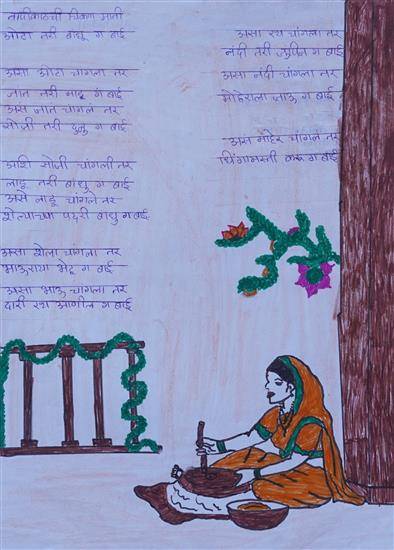 नदीकाठची चिकण माती
ओटा तरी बांधू ग बाई
असा ओटा चांगला तर
जात तरी मांडू ग बाई
अस जात चांगलं तर
सोजी तरी दळू ग बाई
अशि सोजी चांगली तर
लाडू तरी बांधू ग बाई
असे लाडू चांगलं तर
शेल्याच्या पदरी बांधू ग बाई
असा शेला चांगला तर
भाऊराया भेटू ग बाई
असा भाऊ चांगला तर
दारी रथ आणील ग बाई
असा रथ चांगला तर
नंदी तरी जुपिन ग बाई
असा नंदी चांगला तर
माहेराला जाऊ ग बाई
अस माहेर चांगलं तर
धिंगामस्ती करू ग बाई